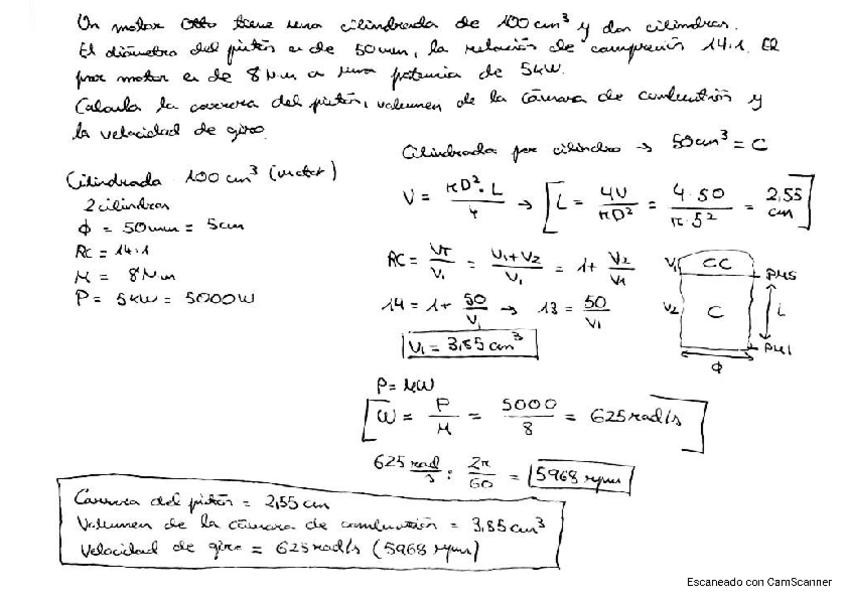 Un motor Otto tiene una cilindrada de 100 cm³ y dos cilindros.
El diámetro del pistón es de 50mm, la relación de compresión 14:1. El
par motor es de 8 Nm a una potencia de 5kW.
Calcula la carrera del pistón, volumen de la cámara de combustión y
la velocidad de giro.
Cilindrada 100 cm³ (motor)
2 cilindros
ϕ = 50mm = 5cm
Rc = 14:1
M = 8Nm
P = 5kW = 5000W
Cilindrada por cilindro → 50cm³ = C
V = πD²·L / 4 → [L = 4V / πD² = 4·50 / π·5² = 2,55 cm]
RC = VT / V1 = V1+V2 / V1 = 1+ V2 / V1
14 = 1+ 50 / V1 → 13 = 50 / V1
V1 = 3,85 cm³
V1 CC PMS
V2 C L
PMI
ϕ
P = MW
[W = P / M = 5000 / 8 = 625 rad/s]
625 rad / s : 2π / 60 = 5968 rpm
Carrera del pistón = 2,55 cm
Volumen de la cámara de combustión = 3,85 cm³
Velocidad de giro = 625 rad/s (5968 rpm)
Escaneado con CamScanner